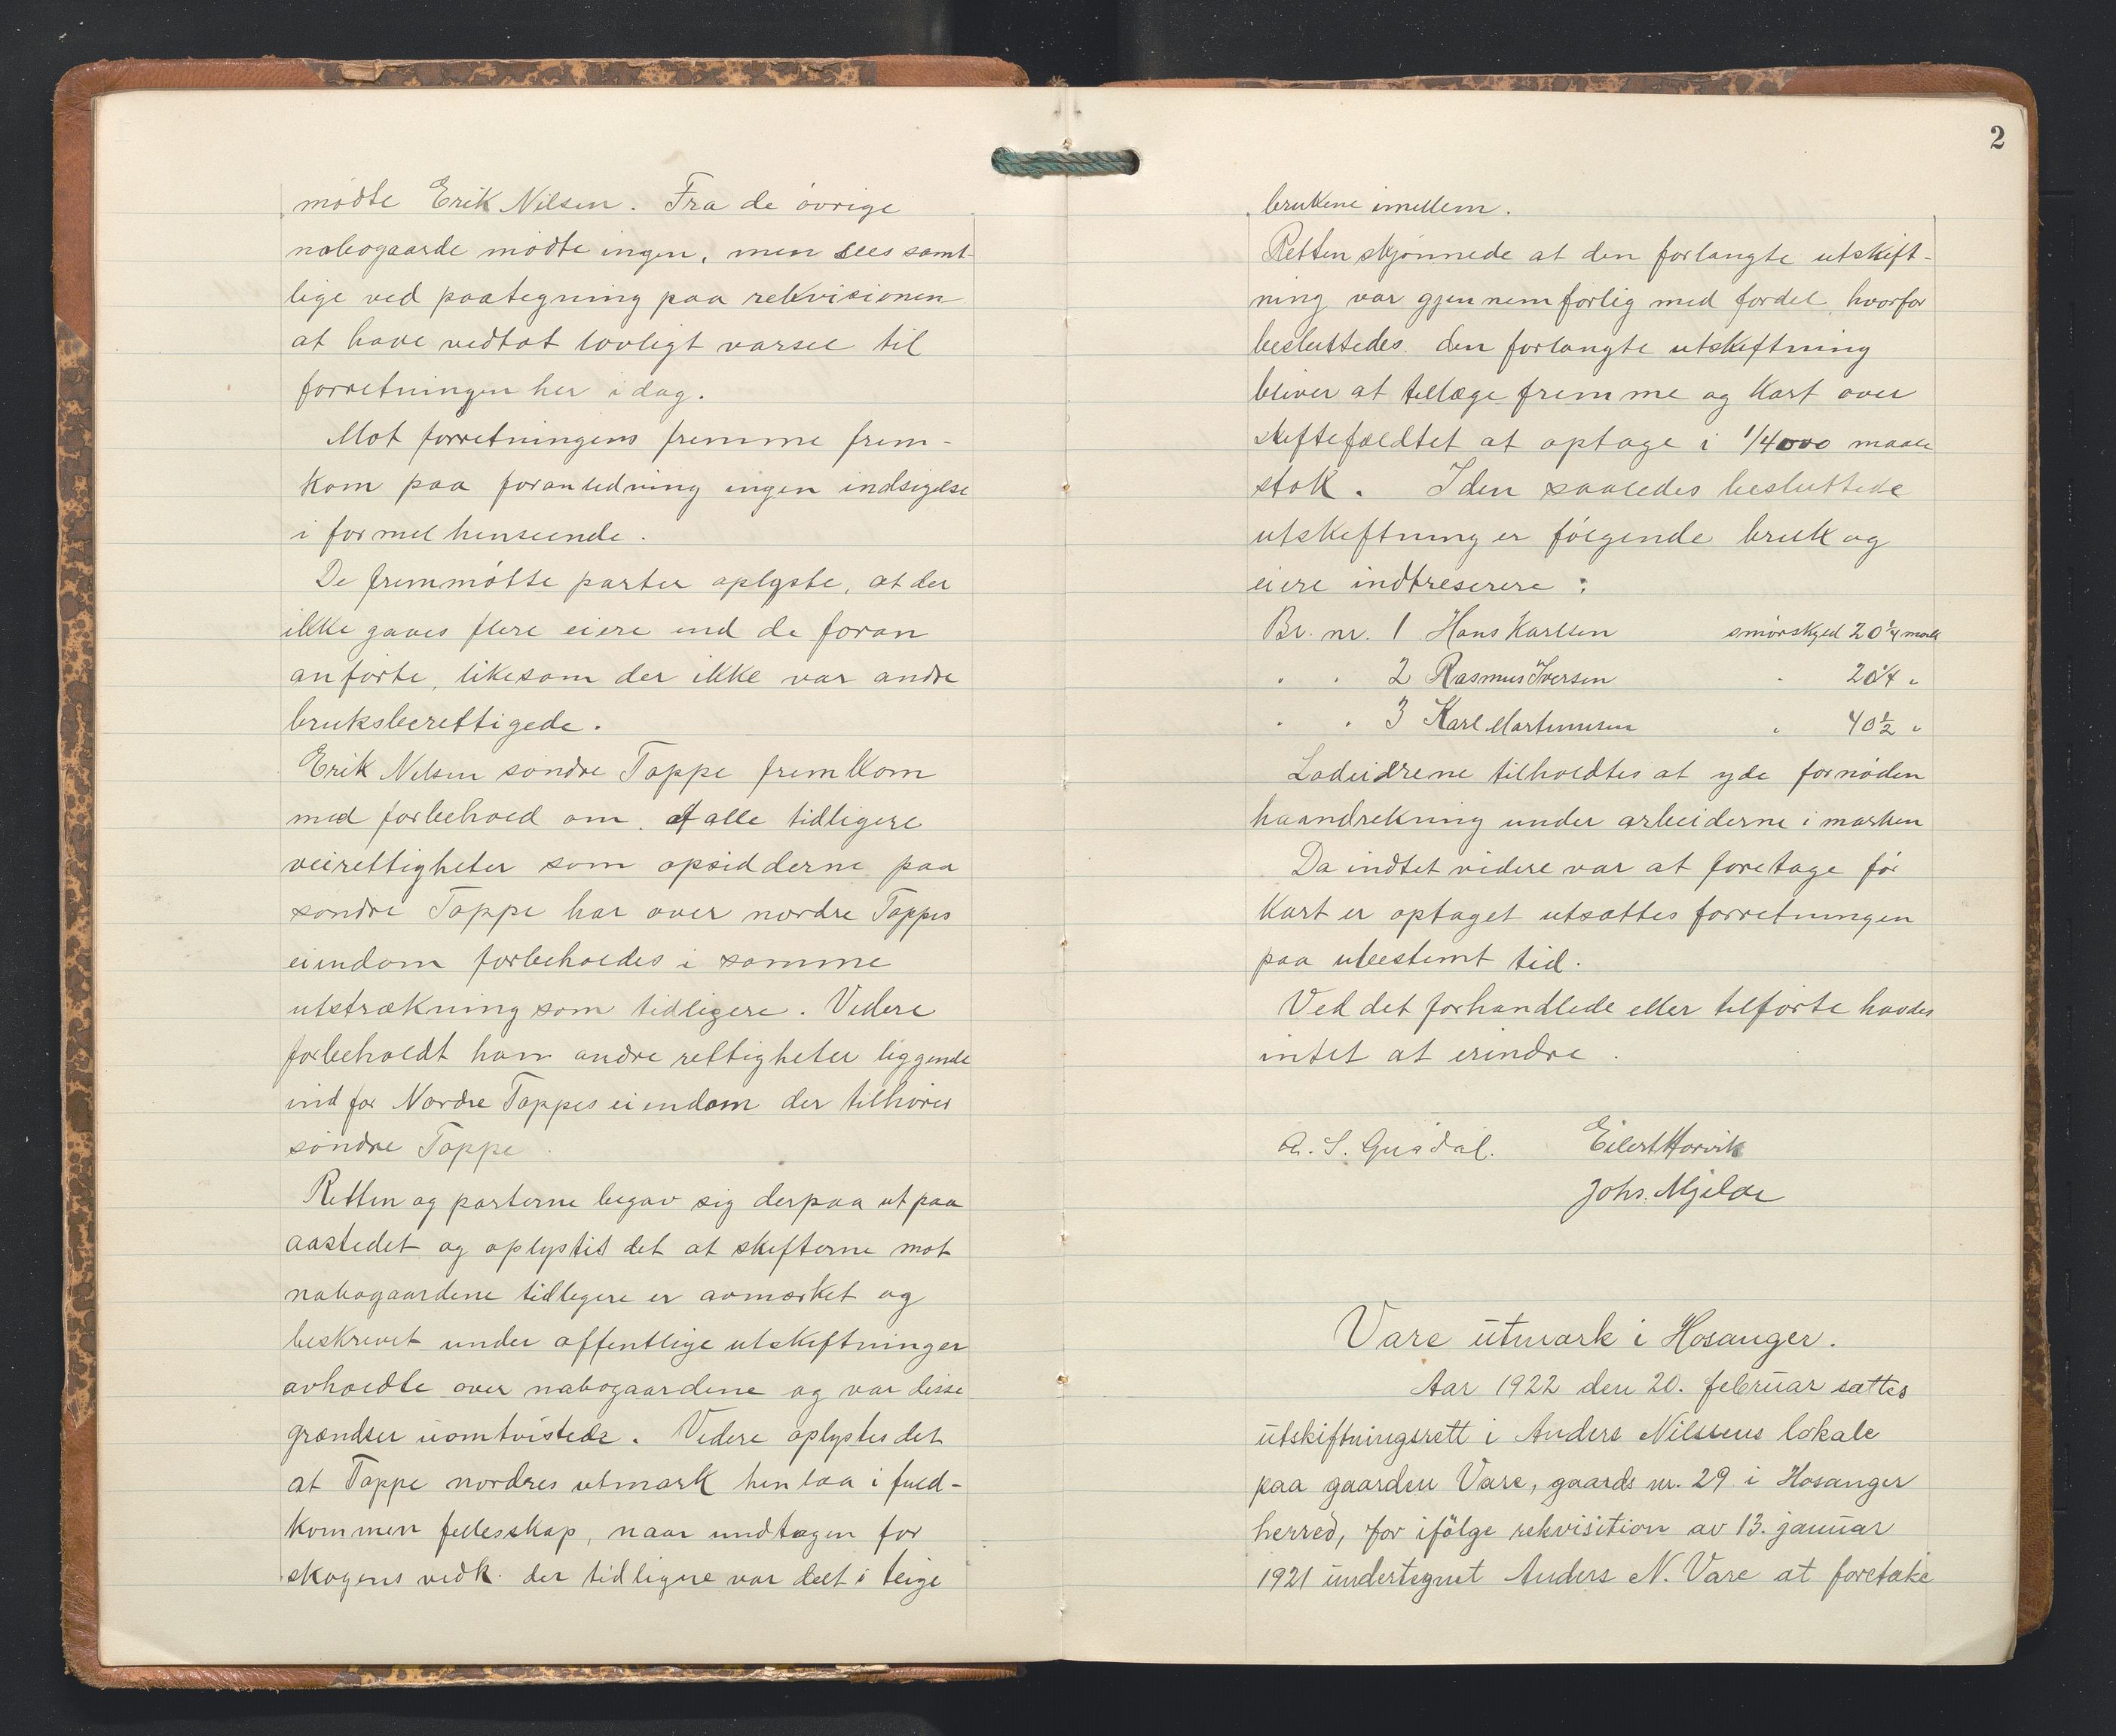 mødte Erik Nilsen. Fra de øvrige
nabogaarde mødte ingen, men sees samt-
lige ved paategning paa rekvisionen
at have vedtat lovligt varsel til
forretningen her i dag.
Mot forretningens fremme frem-
kom paa foranledning ingen indsigelse
i formel henseende.
De fremmøtte parter oplyste, at der
ikke gaves flere eiere end de foran
anførte, likesom der ikke var andre
bruksberettigede.
Erik Nilsen søndre Toppe fremkom
med forbehold om. at alle tidligere
veirettigheter som opsidderne paa
søndre Toppe har over nordre Toppes
eiendom forbeholdes i samme
utstrækning som tidligere. Videre
forbeholdt han andre rettigheter liggende
ind for Nordre Toppes eiendom der tilhører
søndre Toppe.
Retten og parterne begav sig derpaa ut paa
aastedet og oplystes det at skifterne mot
nabogaardene tidligere er avmerket og
beskrevet under offentlige utskiftninger
avholdte over nabogaardene og var disse
grændser uomtvistede. Videre oplystes det
at Toppe nordres utmark henlaa i fuld-
kommen fellesskap, naar undtagen for
skogens vedk. der tidligere var delt i teige
2
brukene imellem.
Retten skjønnede at den forlangte utskift-
ning var gjennemførlig med fordel, hvorfor
besluttedes den forlangte utskiftning
bliver at tillæge fremme og kart over
skiftefeldtet at optage i 1/4000 maale
stok. I den saaledes besluttede
utskiftning er følgende bruk og
eiere indtreserere :
Br. nr. 1 Hans Karlsen smørskyld 20 1/4 mark
" " 2 Rasmus Iversen " 20 1/4 "
" " 3 Karl Martinusen " 40 1/2 "
Lodeierne tilholdtes at yde fornøden
haandrekning under arbeiderne i marken
Da indtet videre var at foretage før
kart er optaget utsattes forretningen
paa ubestemt tid.
Ved det forhandlede eller tilførte havdes
intet at erindre.
Eilert Horvik
Johs. Mjelde
Vare utmark i Hosanger.
Aar 1922 den 20. februar sattes
utskiftningsrett i Anders Nilssens lokale
paa gaarden Vare, gaards nr. 29 i Hosanger
herred, for ifølge rekvisition av 13. januar
1921 undertegnet Anders N. Vare at foretake